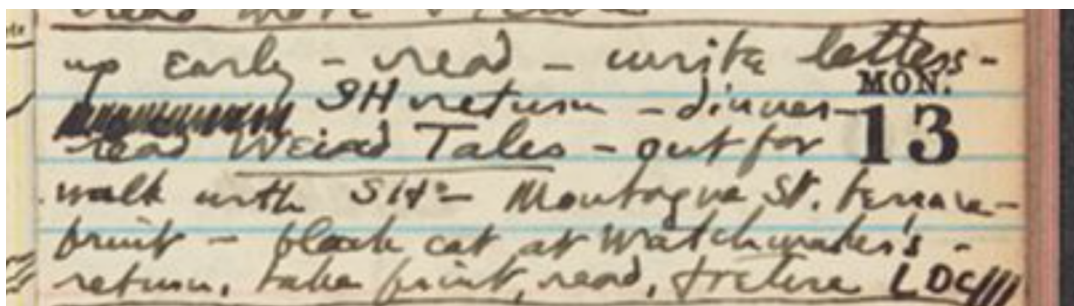 up early - read - write letters -
MON.
SH return - dinner -
13
read Weird Tales - out for
walk with SH - Montague St. terrace -
fruit - black cat at watchmaker's -
return, take fruit, read, & retire LDC///